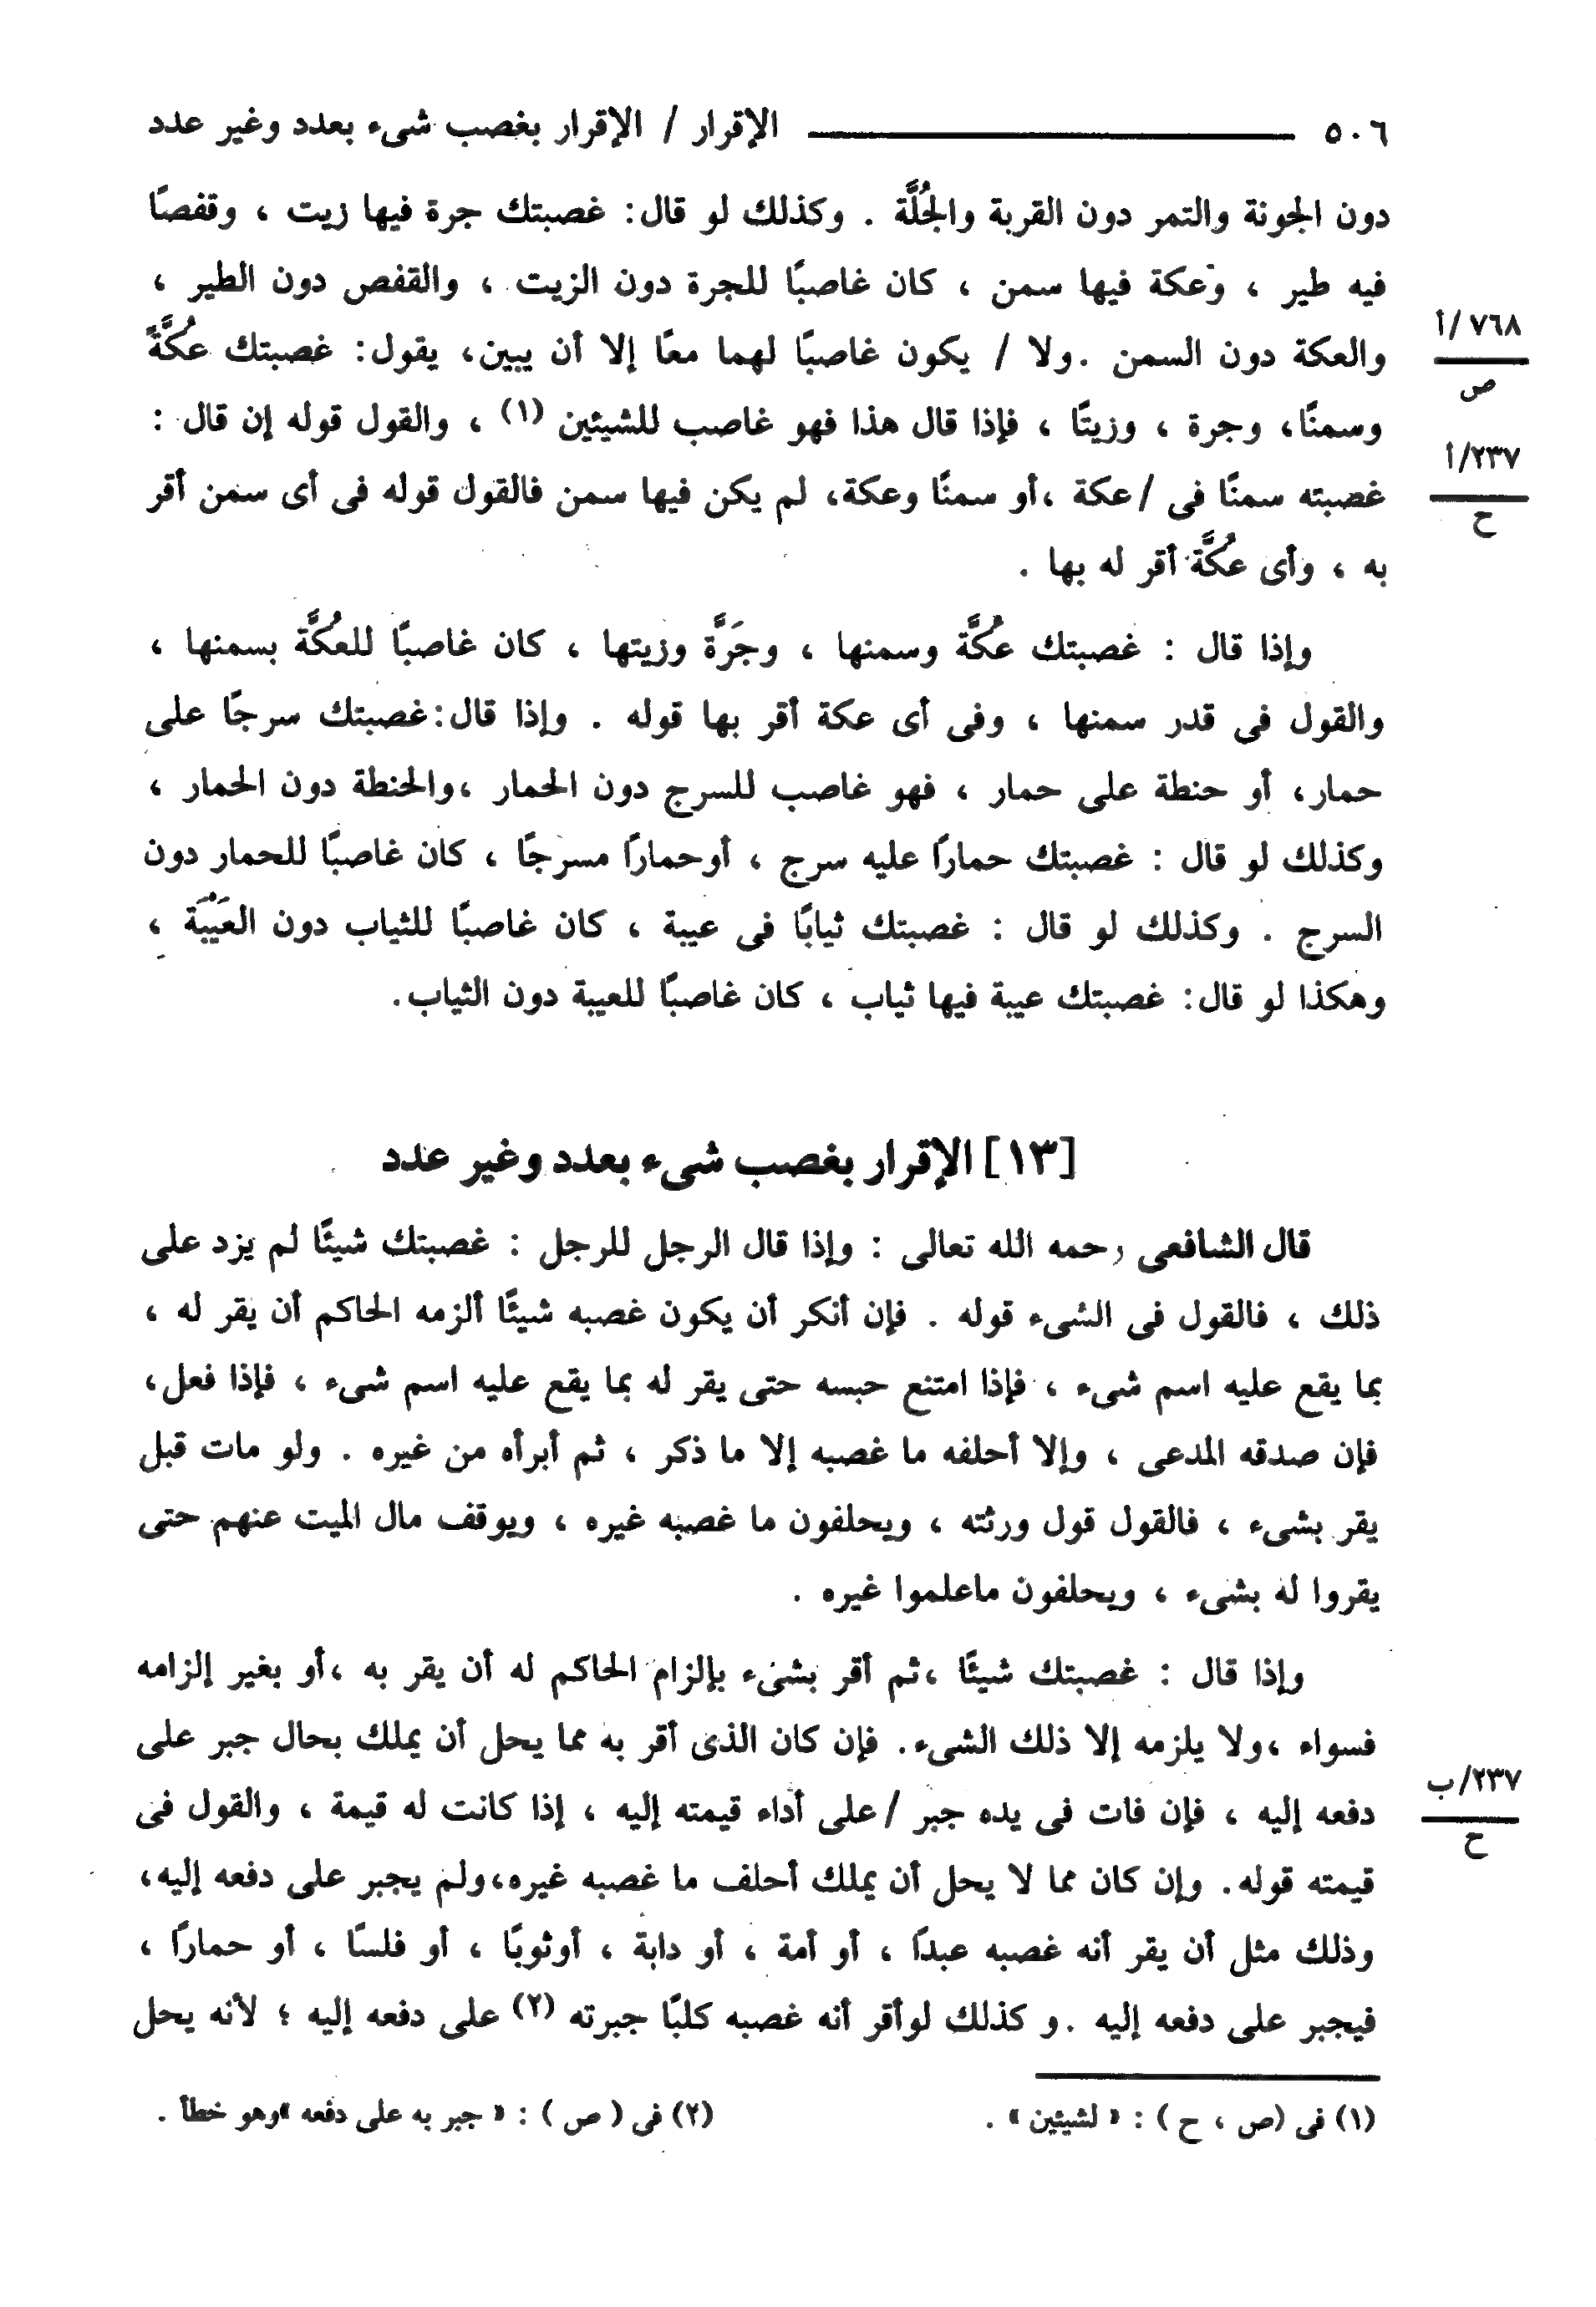 ٥٠٦ الإقرار / الإقرار بغصب شىء بعدد وغير عدد
دون الجونة والتمر دون القربة والجُلَّة . وكذلك لو قال: غصبتك جرة فيها زيت ، وقفصًا
فيه طير ، وعكة فيها سمن ، كان غاصبًا للجرة دون الزيت ، والقفص دون الطير ،
والعكة دون السمن .ولا / يكون غاصبًا لهما معًا إلا أن يبين، يقول: غصبتك عكَّةً
٧٦٨/أ
ص
وسمنًا، وجرة ، وزيتًا ، فإذا قال هذا فهو غاصب للشيئين (١) ، والقول قوله إن قال :
غصبته سمنًا فى /عكة ،أو سمنًا وعكة، لم يكن فيها سمن فالقول قوله فى أى سمن أقر
٢٣٧/أ
ح
به ، وأى عكَّة أقر له بها .
وإذا قال : غصبتك عكَّة وسمنها ، وجَرَّة وزيتها ، كان غاصبًا للعكَّة بسمنها ،
والقول فى قدر سمنها ، وفى أى عكة أقر بها قوله . وإذا قال:غصبتك سرجًا على
حمار، أو حنطة على حمار ، فهو غاصب للسرج دون الحمار ،والحنطة دون الحمار ،
وكذلك لو قال : غصبتك حمارًا عليه سرج ، أوحمارًا مسرجًا ، كان غاصبًا للحمار دون
السرج . وكذلك لو قال : غصبتك ثيابًا فى عيبة ، كان غاصبًا للثياب دون العَيْبَة ،
وهكذا لو قال: غصبتك عيبة فيها ثياب ، كان غاصبًا للعيبة دون الثياب.
[١٣] الإقرار بغصب شىء بعدد وغير عدد
قال الشافعى رحمه الله تعالى : وإذا قال الرجل للرجل : غصبتك شيئًا لم يزد على
ذلك ، فالقول فى الشىء قوله . فإن أنكر أن يكون غصبه شيئًا ألزمه الحاكم أن يقر له ،
بما يقع عليه اسم شىء ، فإذا امتنع حبسه حتى يقر له بما يقع عليه اسم شىء ، فإذا فعل،
فإن صدقه المدعى ، وإلا أحلفه ما غصبه إلا ما ذكر ، ثم أبرأه من غيره . ولو مات قبل
يقر بشىء ، فالقول قول ورثته ، ويحلفون ما غصبه غيره ، ويوقف مال الميت عنهم حتى
يقروا له بشىء ، ويحلفون ماعلموا غيره .
وإذا قال : غصبتك شيئًا ،ثم أقر بشىء بإلزام الحاكم له أن يقر به ،أو بغير إلزامه
فسواء ،ولا يلزمه إلا ذلك الشىء. فإن كان الذى أقر به مما يحل أن يملك بحال جبر على
دفعه إليه ، فإن فات فى يده جبر /على أداء قيمته إليه ، إذا كانت له قيمة ، والقول فى
٢٣٧/ب
ح
قيمته قوله. وإن كان مما لا يحل أن يملك أحلف ما غصبه غيره،ولم يجبر على دفعه إليه،
وذلك مثل أن يقر أنه غصبه عبدًا ، أو أمة ، أو دابة ، أوثوبًا ، أو فلسًا ، أو حمارًا ،
فيجبر على دفعه إليه .و كذلك لوأقر أنه غصبه كلبًا جبرته (٢) على دفعه إليه ؛ لأنه يحل
(١) فى (ص ، ح ) : « لشيئين » .
(٢) فى ( ص ) : « جبر به على دفعه »وهو خطأ .